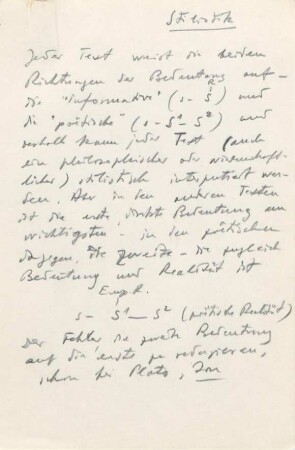 Stilistik
Jeder Text weist die beiden
Richtungen der Bedeutung auf -
die "informative" (s - S) und
die "poëtische" (s - S¹ - S²) und
deshalb kann jeder Text (auch
ein philosophischer oder wissenschaft-
licher) stilistisch interpretiert wer-
den. Aber in den anderen Texten
ist die erste, direkte Bedeutung am
wichtigsten - in den poëtischen
dagegen, die zweite - die zugleich
Bedeutung und Realität ist
s - S¹ - S² (poëtische Realität)
Der Fehler die zweite Bedeutung
auf die erste zu reduzieren,
schon bei Plato, Ion